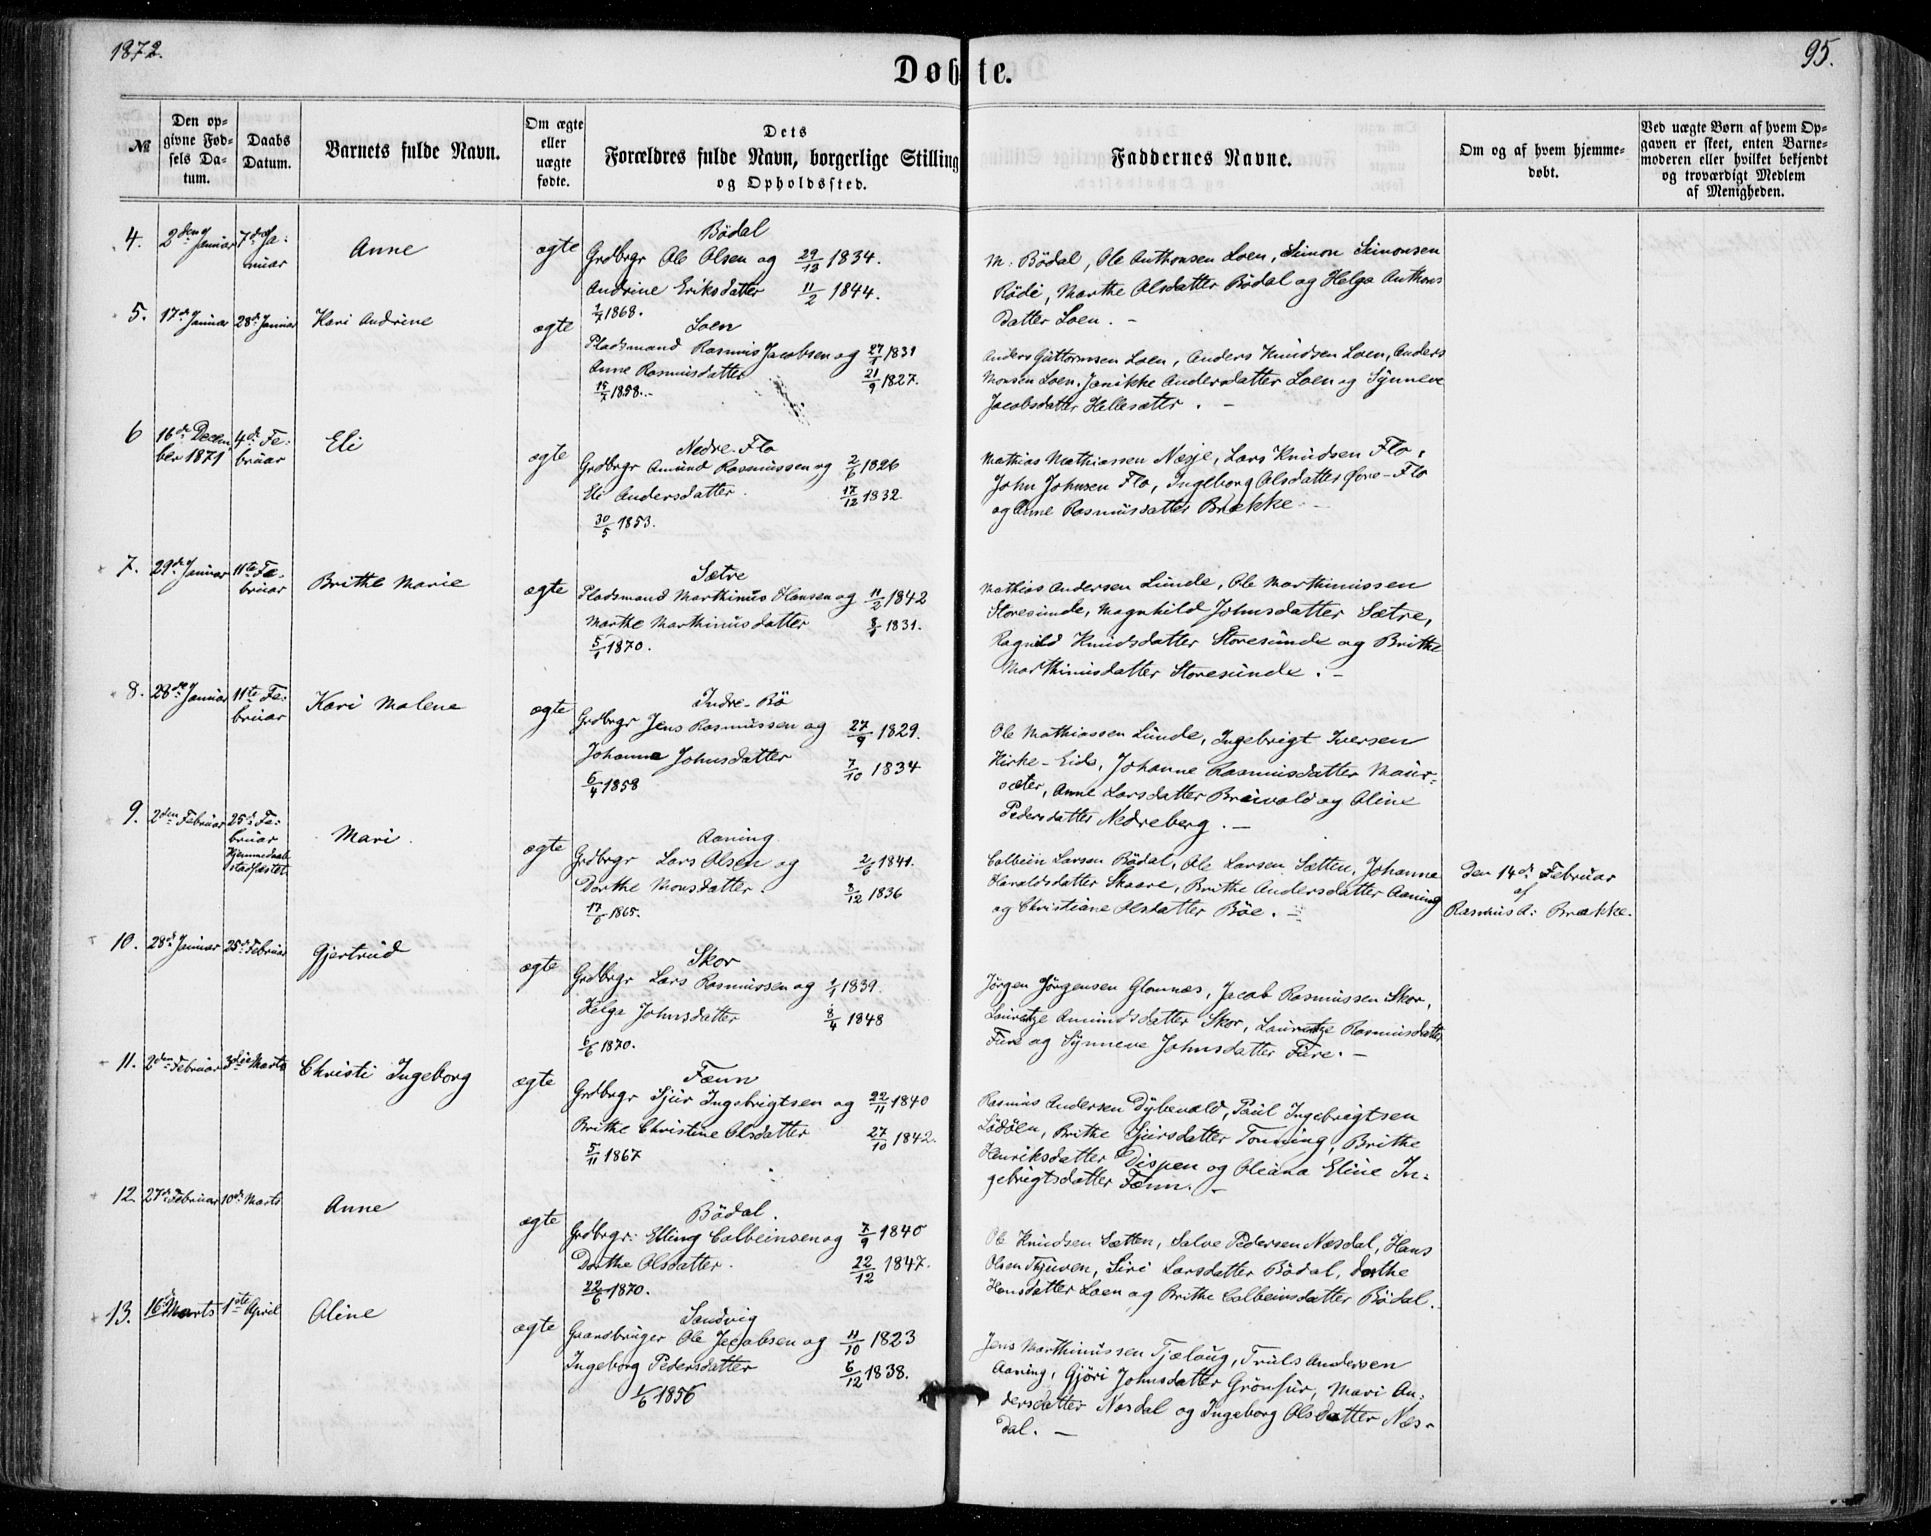 1872.
Döbte.
95.
№
Den opgivne Fødsels Datum.
Daabs Datum.
Barnets fulde Navn.
Om ægte eller uægte fødte.
Dets Forældres fulde Navn, borgerlige Stilling og Opholdssted.
Faddernes Navne.
Om og af hvem hjemmedøbt.
Ved uægte Børn af hvem Opgaven er skeet, enten Barnemoderen eller hvilket bekjendt og troværdigt Medlem af Menigheden.
4.
2den Januar
7de Januar
Anne
ægte
Bödal
Grdbrgr Ole Olsen og 29/12 1834.
Andrine Eriksdatter 11/2 1844.
1/7 1868.
M: Bödal, Ole Anthonsen Loen, Simon Simonsen
Röde, Marthe Olsdatter Bödal og Helga Anthons
datter Loen. -
5.
17de Januar
28de Januar
Kari Andrine
ægte
Loen
Pladsmand Rasmus Jacobsen og 27/1 1831
Anne Rasmusdatter 21/9 1827.
15/7 1858.-
Anders Guttormsen Loen, Anders Knudsen Loen, Anders
Monsen Loen, Janikke Andersdatter Loen og Synneve
Jacobsdatter Hellesæter. -
6
16de December 1871
4de Februar
Eli
ægte
Nedre-Flo
Grdbrgr Amund Rasmussen og 2/6 1826
Eli Andersdatter. 17/12 1832.
30/5 1853.
Mathias Mathiassen Næsje, Lars Knudsen Flo,
John Johnsen Flo, Ingeborg Olsdatter Øvre-Flo
og Anne Rasmusdatter Brække. -
7.
29de Januar
11te Februar
Brithe Marie
ægte
Sætre
Pladsmand Marthinus Hansen og 11/2 1842
Marthe Marthinusdatter 8/1 1831.
5/1 1870.
Mathias Andersen Lunde, Ole Marthinussen
Storesunde, Magnhild Johnsdatter Sætre,
Ragnild Knudsdatter Storesunde og Brithe
Marthinusdatter Storesunde. -
8.
28de Januar
11te Februar
Kari Malene
ægte
Indre-Bö
Grdbrgr Jens Rasmussen og 27/9 1829.
Johanne Johnsdatter 7/10 1834
6/4 1858
Ole Mathiassen Lunde, Ingebrigt Iversen
Kirke-Eide, Johanne Rasmusdatter Maur-
sæter, Anne Larsdatter Breivold og Oline
Pedersdatter Nedreberg. -
9.
2den Februar
25de Februar
Hjemmedaab stadfæstet
Mari.
ægte
Aaning.
Grdbrgr Lars Olsen og 2/6 1841.
Dorthe Monsdatter 8/12 1836
17/6 1865.
Colbein Larsen Bödal, Ole Larsen Sætten, Johanne
Haraldsdatter Skaare, Brithe Andersdatter Aaning
og Christiane Olsdatter Böe. -
Den 14de Februar
af
Rasmus A: Brække.
10.
28de Januar
25de Februar
Gjertrud
ægte
Skor
Grdbrgr Lars Rasmussen og 1/1 1839.
Helge Johnsdatter 8/4 1848
6/6 1870.
Jørgen Jörgensen Glomnæs, Jacob Rasmussen Skor,
Lauretze Amundsdatter Skor, Lauretze Rasmusdatter
Fure og Synneve Johnsdatter Fure. -
11.
2den Februar
3die Marts
Christi Ingeborg
ægte
Fænn
Grdbrgr Sjur Ingebrigtsen og 22/11 1840
Brithe Christine Olsdatter 27/10 1842.
5/11 1867
Rasmus Andersen Dybevold, Paul Ingebrigtsen
Lödöen, Brithe Sjursdatter Tonning, Brithe
Henriksdatter Dispen og Oliana Eline In-
gebrigtsdatter Fænn. -
12.
27de Februar
10de Marts
Anne
ægte
Bödal.
Grdbrgr: Elling Colbeinsen og 7/9 1840
Dorthe Olsdatter. 22/12 1847.
22/6 1870.
Ole Knudsen Sætten, Salve Pedersen Næsdal, Hans
Olsen Tjuven, Siri Larsdatter Bödal, Dorthe
Hansdatter Loen og Brithe Colbeinsdatter Bödal.
13.
16de Marts
1ste April
Oline
ægte
Sandvig
Gaardbruger Ole Jacobsen og 11/10 1823
Ingeborg Pedersdatter 6/12 1838.
1/6 1856
Jens Marthinussen Tjælaug, Truls Andersen
Aaning, Gjöri Johnsdatter Grönfur, Mari An-
dersdatter Næsdal og Ingeborg Olsdatter Næs-
dal. -